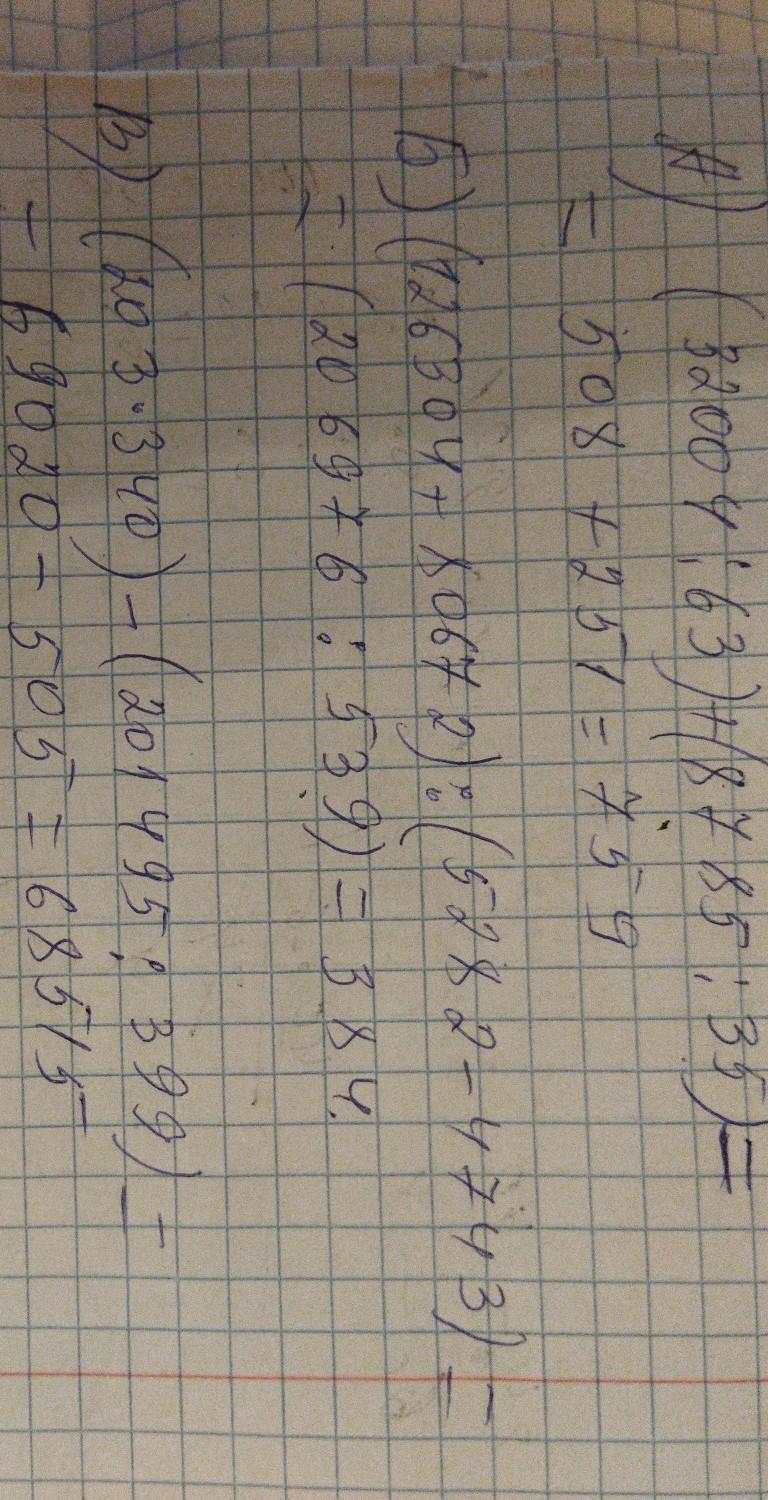 А) (32004:63)+(8785:35)=
= 508+251=759
Б) (126304+80672):(5282-4743)=
= (206976:539)=384.
В) (203·340)-(201495:399)=
= 69020-505=68515